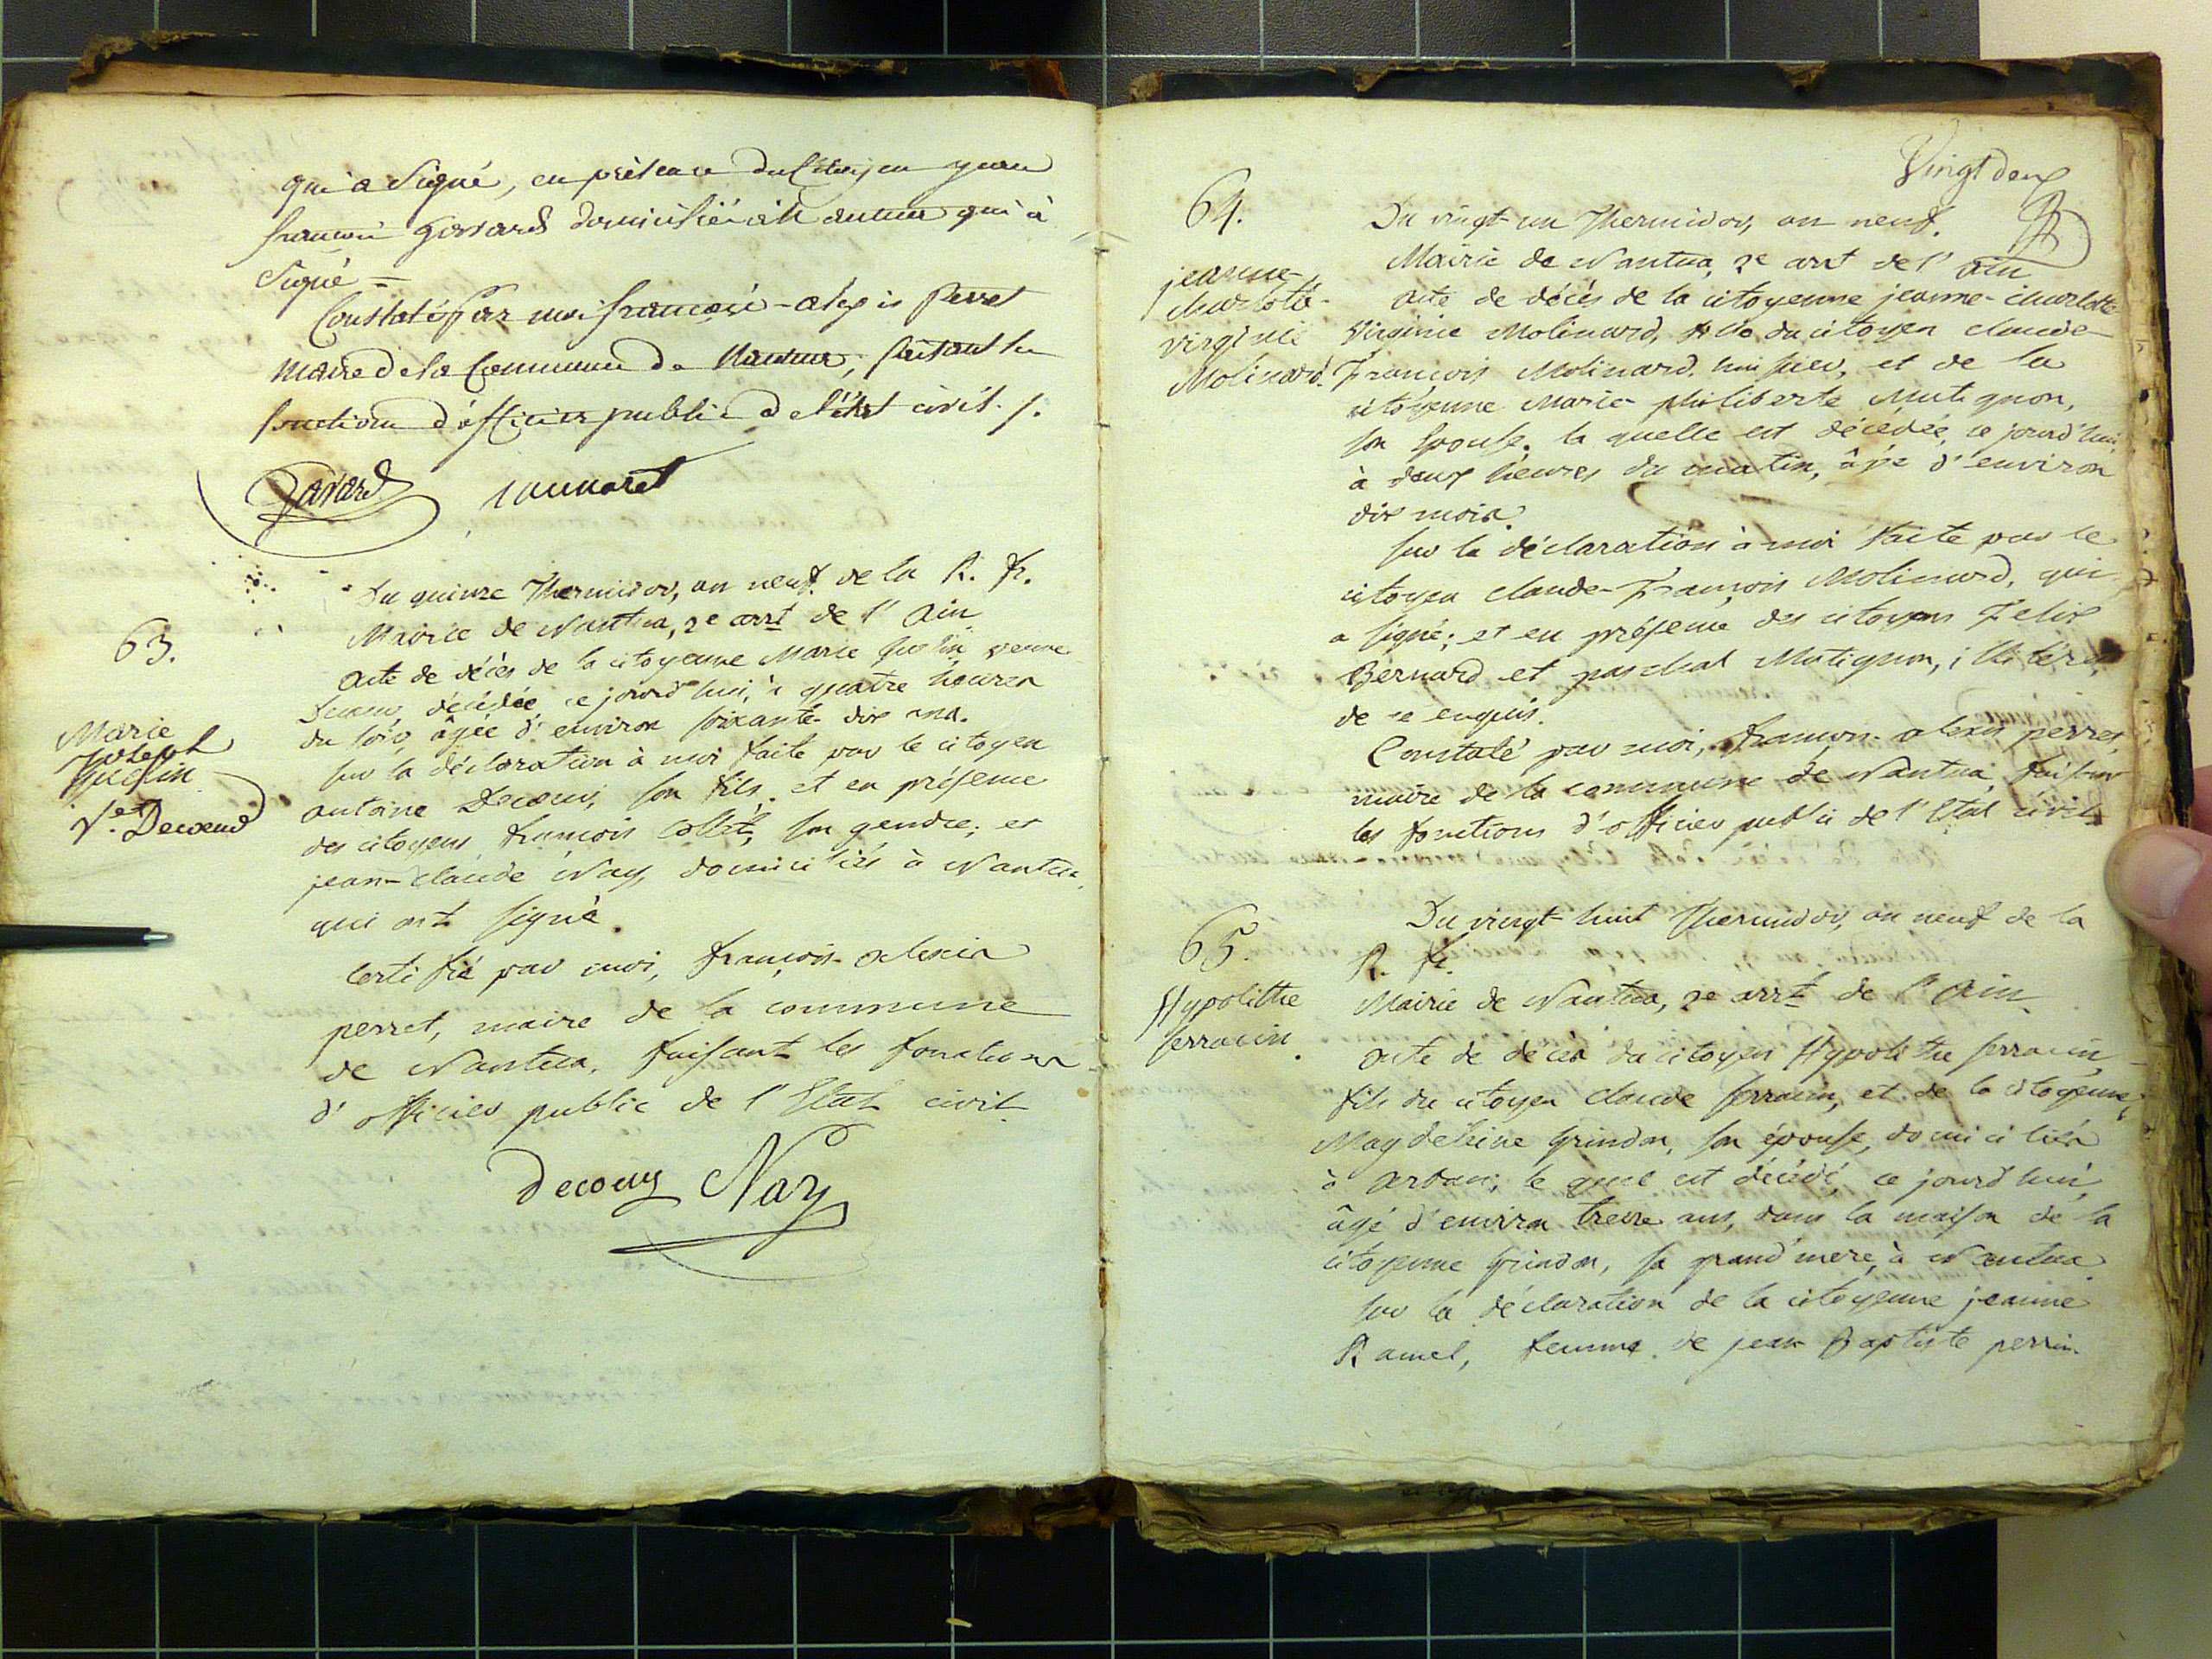 qui a signé, en présence du Citoyen
françois domicilié à Nantua qui a
signé =
Constaté par moi françois-alexis Perret
maire de la Commune de Nantua, faisant les
fonctions d'officier public de l'état civil ./.
Gavard jannaret
63.
Marie
joseph
Ve
Decoeur
Du quinze Thermidor, an neuf de la R. fr.
Mairie de Nantua, 2e arrt de l'Ain
acte de décès de la citoyenne Marie veuve
Decoeur, décédée ce jourd'hui, à quatre heures
du soir, âgée d'environ soixante-dix ans.
sur la déclaration à moi faite par le citoyen
antoine Decoeur, son fils, et en présence
des citoyens françois son gendre, et
jean-claude Nay, domiciliés à Nantua,
qui ont signé.
Certifié par moi, françois-alexis
perret, maire de la commune
de Nantua, faisant les fonctions
d'officier public de l'Etat civil
Decoeur Nay
Vingt deux
64.
jeanne-
charlotte-
virginie
Molinard.
Du vingt-un Thermidor, an neuf.
Mairie de Nantua, 2e arrt de l'ain
acte de décès de la citoyenne jeanne-charlotte
Virginie Molinard, fille du citoyen claude-
François Molinard, huissier, et de la
citoyenne Marie-philiberte Mutignon,
son épouse, la quelle est décédée, ce jourd'hui
à deux heures du matin, âgée d'environ
dix mois.
sur la déclaration à moi faite par le
citoyen claude-François Molinard, qui
a signé; et en présence des citoyens Felix
Bernard et paschal Mutignon, illitérés,
de ce enquis.
Constaté par moi, françois-alexis perret,
maire de la commune de Nantua, faisant
les fonctions d'officier public de l'Etat civil
65.
Hypolithe
serracin.
Du vingt-huit Thermidor, an neuf de la
R. fr.
Mairie de Nantua, 2e arrt de l'Ain
acte de décès du citoyen Hypolithe serracin,
fils du citoyen claude serracin, et de la citoyenne
Magdeleine Grindon, son épouse, domiciliés
à arban; le quel est décédé, ce jourd'hui,
âgé d'environ treize ans, dans la maison de la
citoyenne Grindon, sa grand'mere, à Nantua.
sur la déclaration de la citoyenne jeanne
Ramel, femme de jean Baptiste perrin